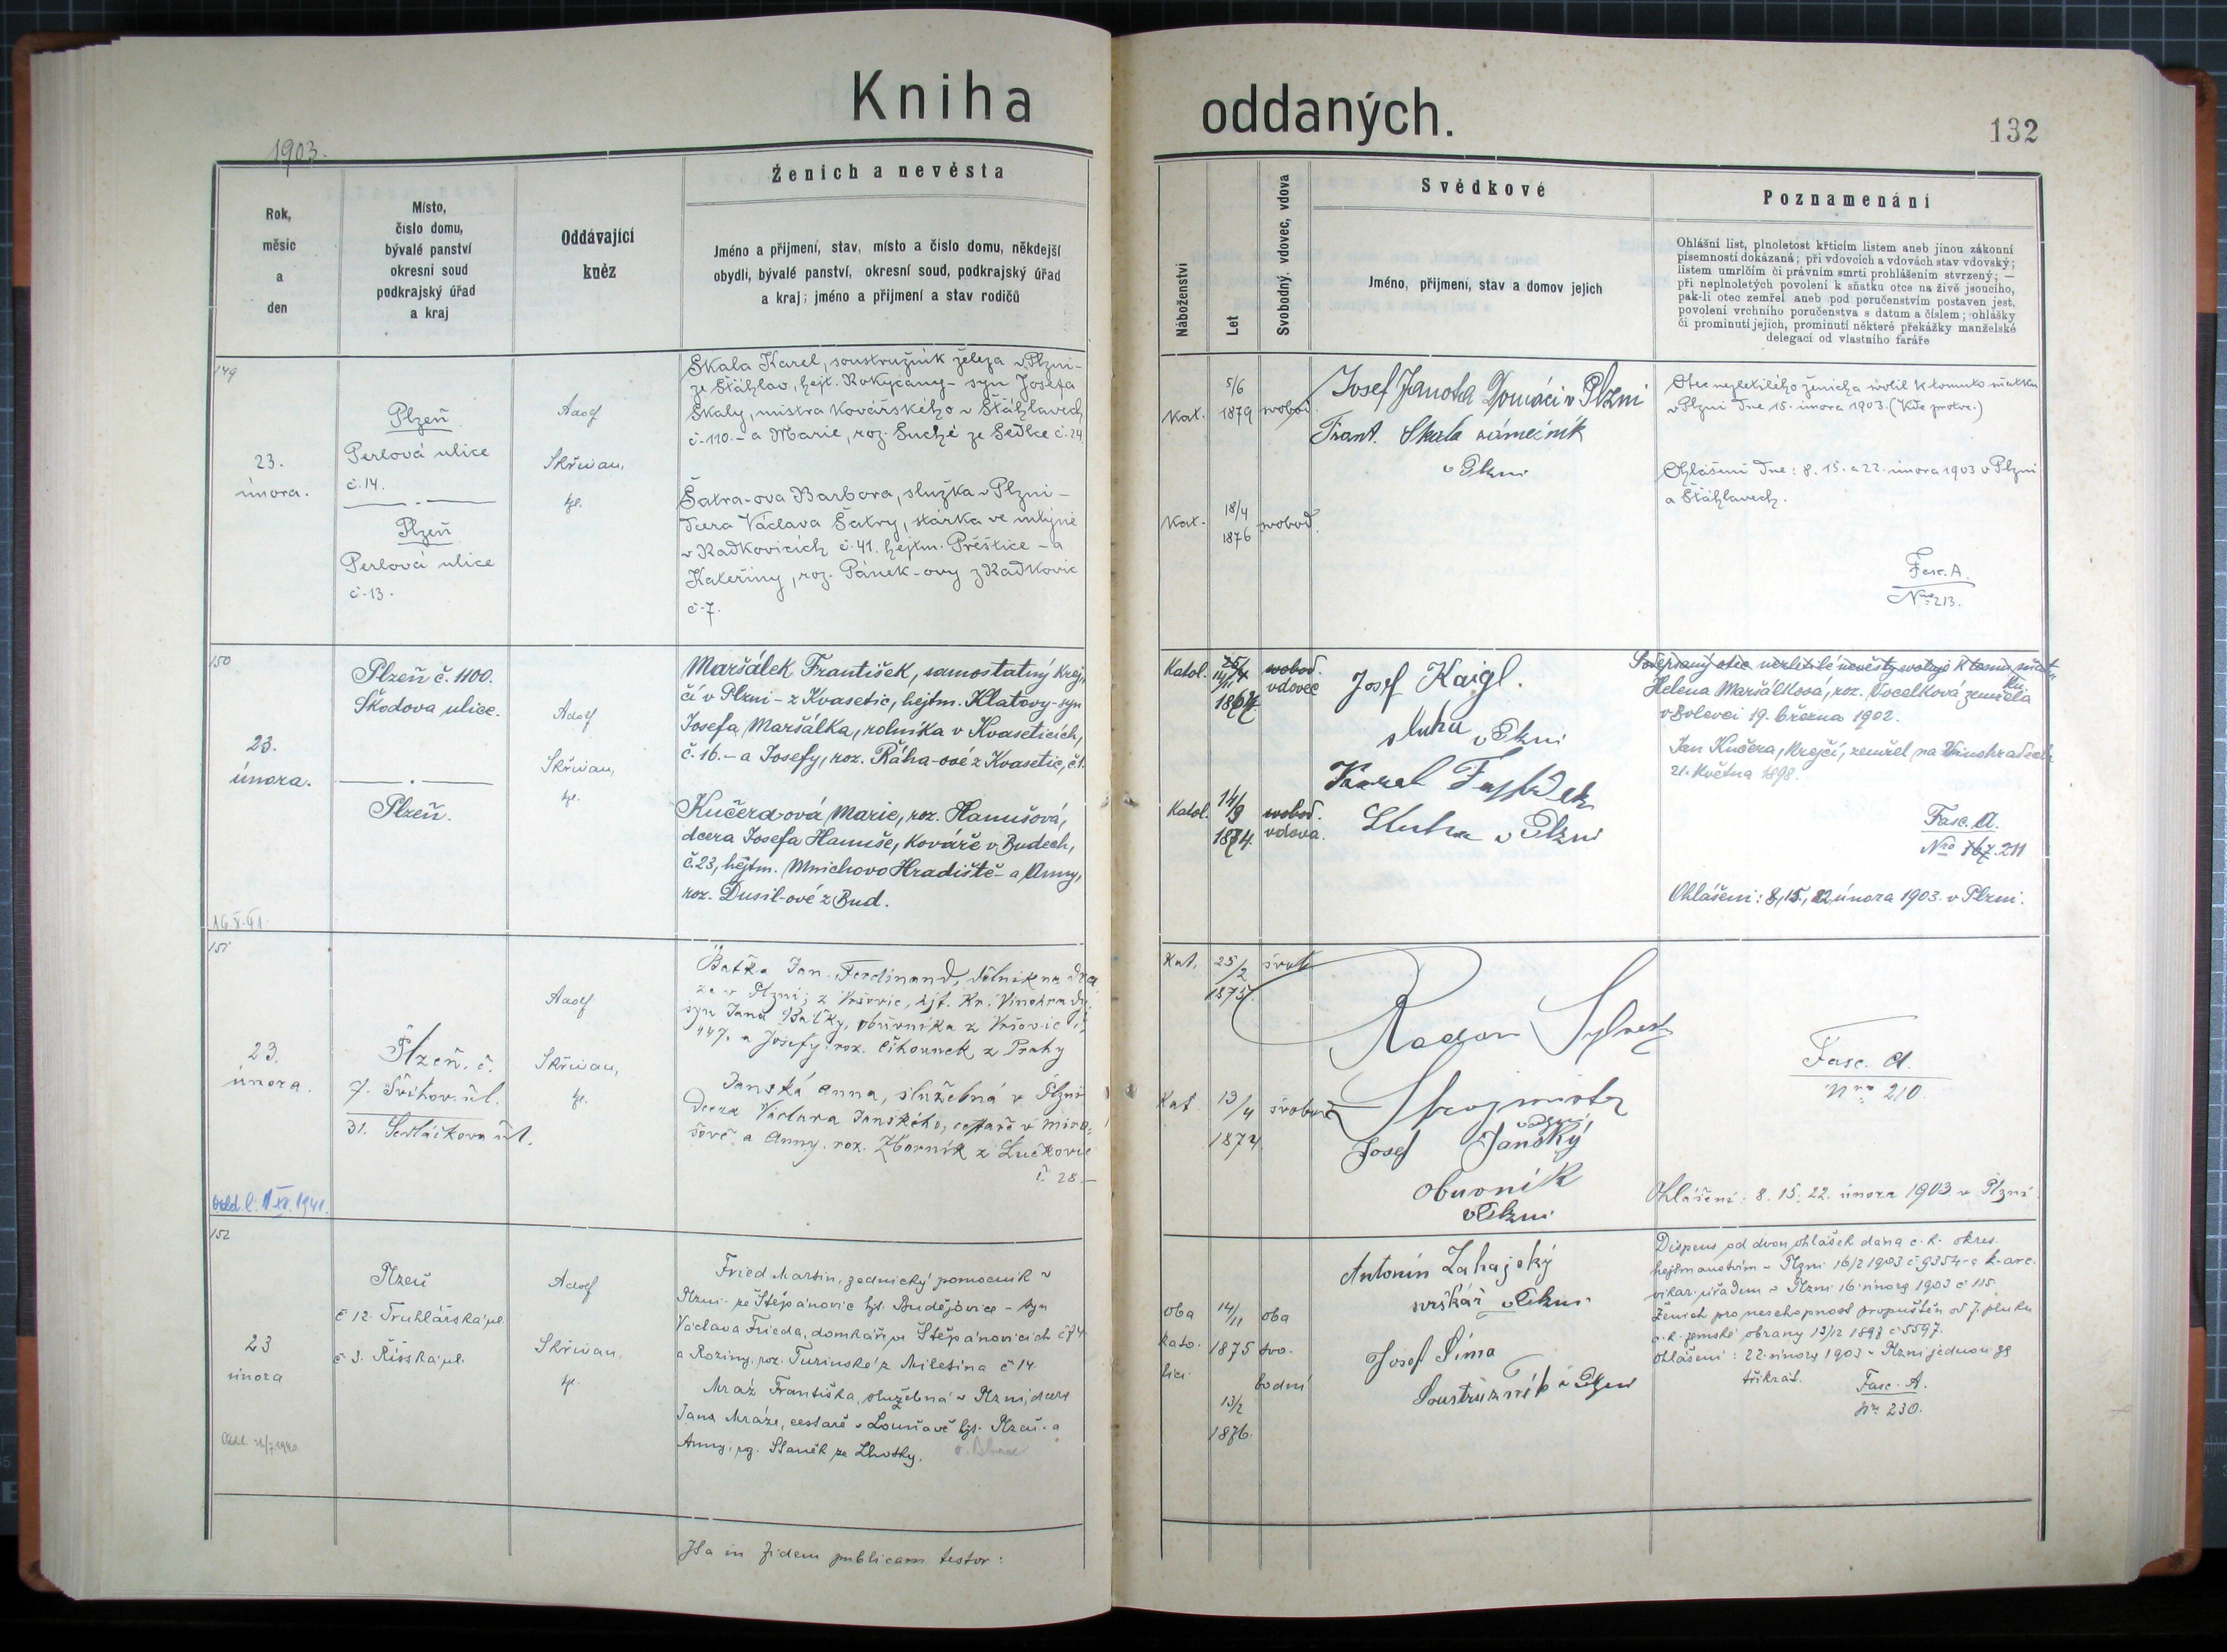 Kniha oddaných.
132
1903.
Rok,
měsíc
a
den
Místo,
číslo domu,
bývalé panství
okresní soud
podkrajský úřad
a kraj
Oddávající
kněz
Ženich a nevěsta
Jméno a přijmení, stav, místo a číslo domu, někdejší
obydlí, bývalé panství, okresní soud, podkrajský úřad
a kraj; jméno a přijmení a stav rodičů
Náboženství
Let
Svobodný, vdovec, vdova
Svědkové
Jméno, přijmení, stav a domov jejich
Poznamenání
Ohlášní list, plnoletost křticím listem aneb jinou zákonní
písemností dokázaná; při vdovcích a vdovách stav vdovský;
listem umrlčím či právním smrti prohlášením stvrzený; —
při neplnoletých povolení k sňatku otce na živě jsoucího,
pak-li otec zemřel aneb pod poručenstvím postaven jest,
povolení vrchního poručenstva s datum a číslem; ohlášky
či prominutí jejich, prominutí některé překážky manželské
delegací od vlastního faráře
149
23.
února.
Plzeň
Perlová ulice
č. 14.
Plzeň
Perlová ulice
č. 13.
Adolf
Skřivan,
Skala Karel, soustružník železa v Plzni -
ze Šťáhlav, hejt. Rokycany - syn Josefa
Skaly, mistra kovářského v Šťáhlavech
č. 110. - a Marie, roz. Suché ze Sedlce č. 24.
Šatra-ova Barbora, služka v Plzni -
dcera Václava Šatry, stárka ve mlýně
v Radkovicích č. 41. hejtm. Přeštice - a
Kateřiny, roz. Pánek-ovy z Radkovic
č. 7.
Kat.
5/6
1879
svobod.
Kat.
18/4
1876
svobod.
Josef Janota Domácí v Plzni
Frant. Skala zámečník
v Plzni
Otec nezletilého ženicha svolil k tomuto sňatku
v Plzni dne 15. února 1903.
Ohlášení dne: 8. 15. a 22. února 1903 v Plzni
a Šťáhlavech.
Fasc. A.
Nro 213.
150
23.
února.
16.X.41.
Plzeň č. 1100.
Škodova ulice.
Plzeň.
Adolf
Skřivan,
Maršálek František, samostatný krej-
čí v Plzni - z Kvasetic, hejtm. Klatovy - syn
Josefa Maršálka, rolníka v Kvaseticích,
č. 16. - a Josefy, roz. Ráha-ové z Kvasetic, č. 1.
Kučera-ová Marie, roz. Hanušová,
dcera Josefa Hanuše, kováře v Budech,
č. 23, hejtm. Mnichovo Hradiště - a Anny,
roz. Dusil-ové z Bud.
Katol.
svobod.
vdovec
Katol.
14/9
1874.
svobod.
vdova.
Josef Kaigl.
sluha v Plzni
Karel
Sluha v Plzni
Podepsaný otec nezletilé nevěsty svoluje k tomu sňat-
ku
Helena Maršálková, roz. Vocelková zemřela
v Bolevci 19. března 1902.
Jan Kučera, krejčí, zemřel na Vinohradech
21. května 1898.
Fasc. A.
Nro 167. 211
Ohlášení: 8, 15, 22 února 1903 v Plzni.
151
23.
února.
Plzeň. č.
7. Švihov. ul.
31. Sedláčkova ul.
Adolf
Skřivan,
Baťka Jan Ferdinand, dělník na drá-
ze v Plzni; z Vršovic, hjt. Kr. Vinohrady;
syn Jana Baťky, obuvníka z Vršovic č.
447. a Josefy roz. Čihounek z Prahy
Janská Anna, služebná v Plzni
dcera Václava Janského, cestaře v Miro-
šově a Anny. roz. Zborník z Lučkovic
č. 28. -
Kat.
25/2
1875.
svob
Kat
13/4
1874
svobod
Radon Sylvestr
Strojmistr
v Plzni
Josef Janský
obuvník
v Plzni
Fasc. A.
Nro 210.
Ohlášení: 8. 15. 22. února 1903 v Plzni.
152
23
února
Plzeň
č 12. Truhlářská ul.
č 3. Říšská ul.
Adolf
Skřivan,
Fried Martin, zednický pomocník v
Plzni ze Štěpánovic hjt. Budějovice - syn
Václava Frieda, domkáře ve Štěpánovicích č 74
a Roziny, roz. Turinské z Miletina č 14.
Mráz Františka, služebná v Plzni, dcera
Jana Mráze, cestaře v Louňové hjt. Plzeň. a
Anny, roz. Staněk ze Lhotky.
Oba
kato-
líci
14/11
1875
13/2
1876.
oba
svo-
bodní
Antonín Zahajský
svrškář v Plzni
Josef Šíma
Soustružník v Plzni
Dispens od dvou ohlášek dána c. k. okres.
hejtmanstvím v Plzni 16/2 1903 č 9354 - a k. arc.
vikar. úřadem v Plzni 16. února 1903 č 115.
Ženich pro neschopnost propuštěn od 7. pluku
c. k. zemské obrany 13/12 1897 č 5597.
Ohlášení: 22. února 1903 v Plzni jednou za
třikrát.
Fasc. A.
Nro 230.
Ita in fidem publicam testor: